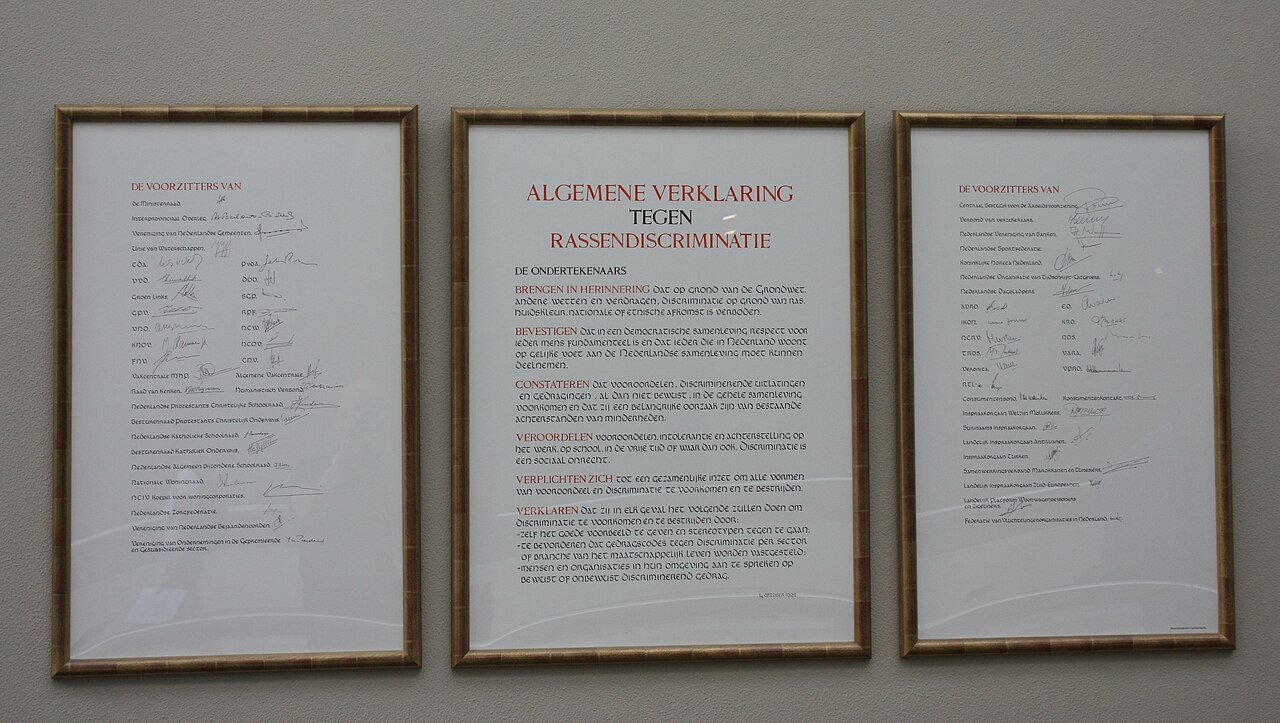 DE VOORZITTERS VAN
de Ministerraad,
Interprovinciaal Overleg,
Vereniging van Nederlandse Gemeenten,
Unie van Waterschappen,
C.D.A. P.v.d.A.
V.V.D. D66.
Groen Links, S.G.P.
G.P.V. R.P.F.
V.N.O. N.C.W.
K.N.O.V. N.C.O.V.
F.N.V. C.N.V.
Vakcentrale M.H.P. Algemene Vakcentrale
Raad van Kerken, Humanistisch Verbond
Nederlandse Protestants Christelijke Schoolraad,
Besturenraad Protestants Christelijk Onderwijs,
Nederlandse Katholieke Schoolraad,
Besturenraad Katholiek Onderwijs,
Nederlandse Algemeen Bijzondere Schoolraad,
Nationale Woningraad,
N.C.I.V. Koepel voor woningcorporaties,
Nederlandse Zorgfederatie,
Vereniging van Nederlandse Bejaardenoorden,
Vereniging van Ondernemingen in de Gepremieerde
en Gesubsidieerde sector,
ALGEMENE VERKLARING
TEGEN
RASSENDISCRIMINATIE
DE ONDERTEKENAARS
BRENGEN IN HERINNERING dat op grond van de Grondwet,
andere wetten en verdragen, discriminatie op grond van ras,
huidskleur, nationale of etnische afkomst is verboden.
BEVESTIGEN dat in een democratische samenleving respect voor
ieder mens fundamenteel is en dat ieder die in Nederland woont
op gelijke voet aan de Nederlandse samenleving moet kunnen
deelnemen.
CONSTATEREN dat vooroordelen, discriminerende uitlatingen
en gedragingen, al dan niet bewust, in de gehele samenleving
voorkomen en dat zij een belangrijke oorzaak zijn van bestaande
achterstanden van minderheden.
VEROORDELEN vooroordelen, intolerantie en achterstelling op
het werk, op school, in de vrije tijd of waar dan ook. Discriminatie is
een sociaal onrecht.
VERPLICHTEN ZICH tot een gezamenlijke inzet om alle vormen
van vooroordeel en discriminatie te voorkomen en te bestrijden.
VERKLAREN dat zij in elk geval het volgende zullen doen om
discriminatie te voorkomen en te bestrijden door:
-zelf het goede voorbeeld te geven en stereotypen tegen te gaan;
-te bevorderen dat gedragscodes tegen discriminatie per sector
of branche van het maatschappelijk leven worden vastgesteld;
-mensen en organisaties in hun omgeving aan te spreken op
bewust of onbewust discriminerend gedrag.
4 oktober 1991
DE VOORZITTERS VAN
Centraal Bestuur voor de Arbeidsvoorziening,
Verbond van verzekeraars,
Nederlandse Vereniging van Banken,
Nederlandse Sportfederatie
Koninklijke Horeca Nederland,
Nederlandse Organisatie van Tijdschrift-Uitgevers,
Nederlandse Dagbladpers,
A.V.R.O. E.O.
I.K.O.N. K.R.O.
N.C.R.V. N.O.S.
T.R.O.S. V.A.R.A.
Veronica, V.P.R.O.
R.T.L.-4
Consumentenbond, Konsumentenkontakt,
Inspraakorgaan Welzijn Molukkers,
Surinaams Inspraakorgaan,
Landelijk Inspraakorgaan Antillianen,
Inspraakorgaan Turken,
Samenwerkingsverband Marokkanen en Tunesiërs,
Landelijk Inspraakorgaan Zuid-Europeanen,
Landelijk Platform Woonwagenbewoners
en Zigeuners,
Federatie van Vluchtelingenorganisaties in Nederland,